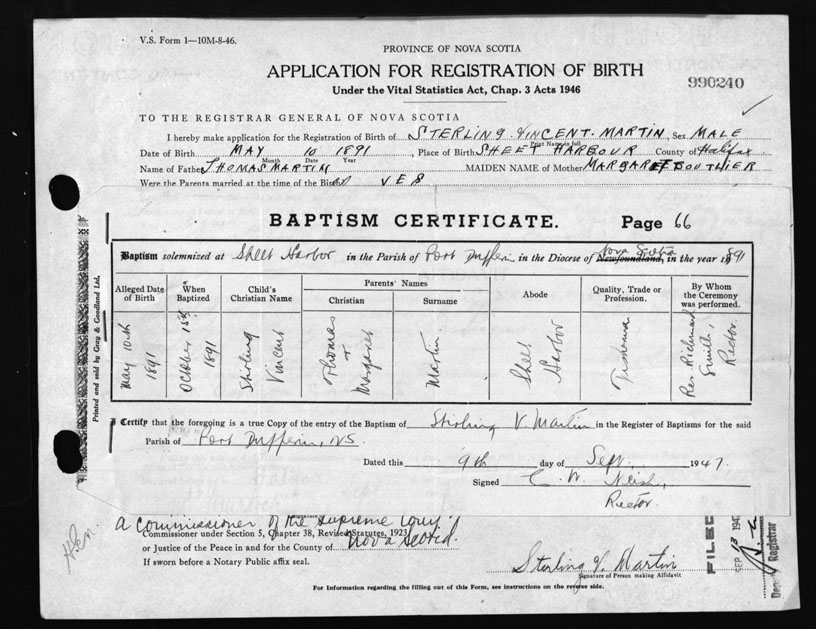 V.S. Form 1—10M-8-46.
PROVINCE OF NOVA SCOTIA
APPLICATION FOR REGISTRATION OF BIRTH
990240
Under the Vital Statistics Act, Chap. 3 Acts 1946
TO THE REGISTRAR GENERAL OF NOVA SCOTIA
I hereby make application for the Registration of Birth of STERLING VINCENT MARTIN, Sex MALE
Print Name in full
Date of Birth MAY 10 1891, Place of Birth SHEET HARBOUR County of Halifax
Month Date Year
Name of Father THOMAS MARTIN MAIDEN NAME of Mother MARGARET BOUTLIER
Were the Parents married at the time of the Birth YES
BAPTISM CERTIFICATE. Page 66
Baptism solemnized at Sheet Harbor in the Parish of Port Dufferin in the Diocese of Newfoundland, Nova Scotia in the year 1891
Alleged Date of Birth
When Baptized
Child's Christian Name
Parents' Names
Christian
Surname
Abode
Quality, Trade or Profession.
By Whom the Ceremony was performed.
May 10th 1891
October 15th 1891
Stirling Vincent
Thomas + Margaret
Martin
Sheet Harbor
Fisherman
Rev. Richmond Smith, Rector.
Printed and sold by Gray & Goodland Ltd.
I Certify that the foregoing is a true Copy of the entry of the Baptism of Stirling V. Martin in the Register of Baptisms for the said
Parish of Port Dufferin, NS.
Dated this 9th day of Sept. 1947.
Signed C. W.
Rector.
A Commissioner of the Supreme Court
Commissioner under Section 5, Chapter 38, Revised Statutes, 1923
or Justice of the Peace in and for the County of Nova Scotia.
If sworn before a Notary Public affix seal.
Sterling V. Martin
Signature of Person making Affidavit
FILED
SEP 13 194
Registrar
For Information regarding the filling out of this Form, see instructions on the reverse side.